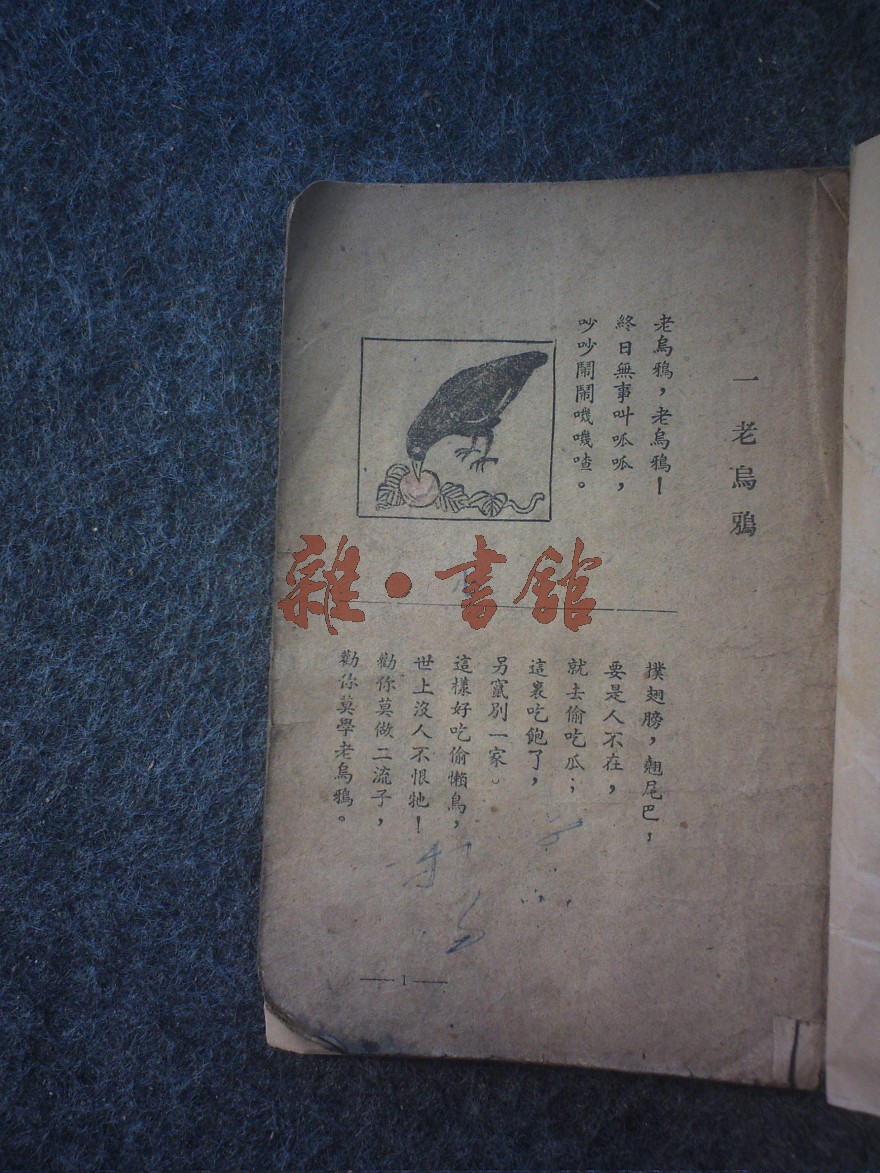 一 老烏鴉
老烏鴉，老烏鴉！
終日無事叫呱呱，
吵吵鬧鬧嘰嘰喳。
撲翅膀，翹尾巴，
要是人不在，
就去偷吃瓜；
這裏吃飽了，
另竄別一家。
這樣好吃偷懶鳥，
世上沒人不恨牠！
勸你莫做二流子，
勸你莫學老烏鴉。
— 1 —
雜·書館